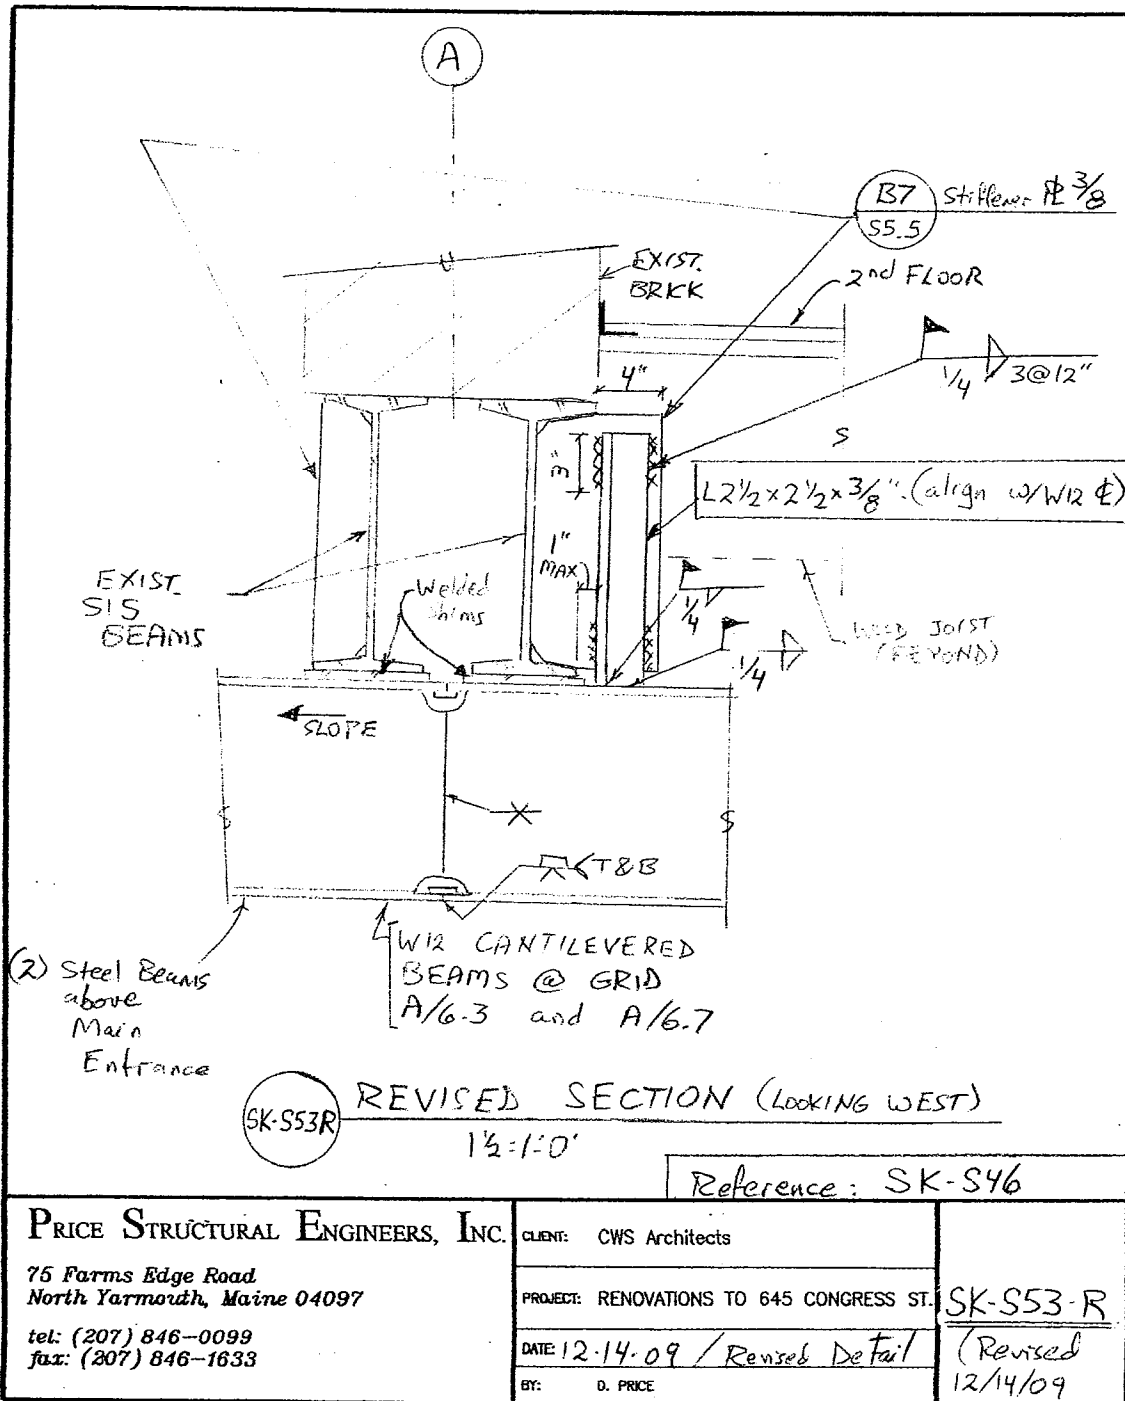 A
B7
S5.5
Stiffener PL 3/8
EXIST.
BRICK
2nd FLOOR
1/4
3@12"
4"
3"
S
L2 1/2 x 2 1/2 x 3/8" (align w/W12 ℄)
1"
MAX
EXIST.
S15
BEAMS
Welded
Shims
1/4
1/4
WOOD JOIST
(BEYOND)
SLOPE
T&B
W12 CANTILEVERED
BEAMS @ GRID
A/6.3 and A/6.7
(2) Steel Beams
above
Main
Entrance
SK-S53R
REVISED SECTION (LOOKING WEST)
1½=1'-0'
Reference: SK-S46
PRICE STRUCTURAL ENGINEERS, INC.
75 Farms Edge Road
North Yarmouth, Maine 04097
tel: (207) 846-0099
fax: (207) 846-1633
CLIENT: CWS Architects
PROJECT: RENOVATIONS TO 645 CONGRESS ST.
DATE: 12-14-09 / Revised Detail
BY: D. PRICE
SK-S53-R
(Revised
12/14/09